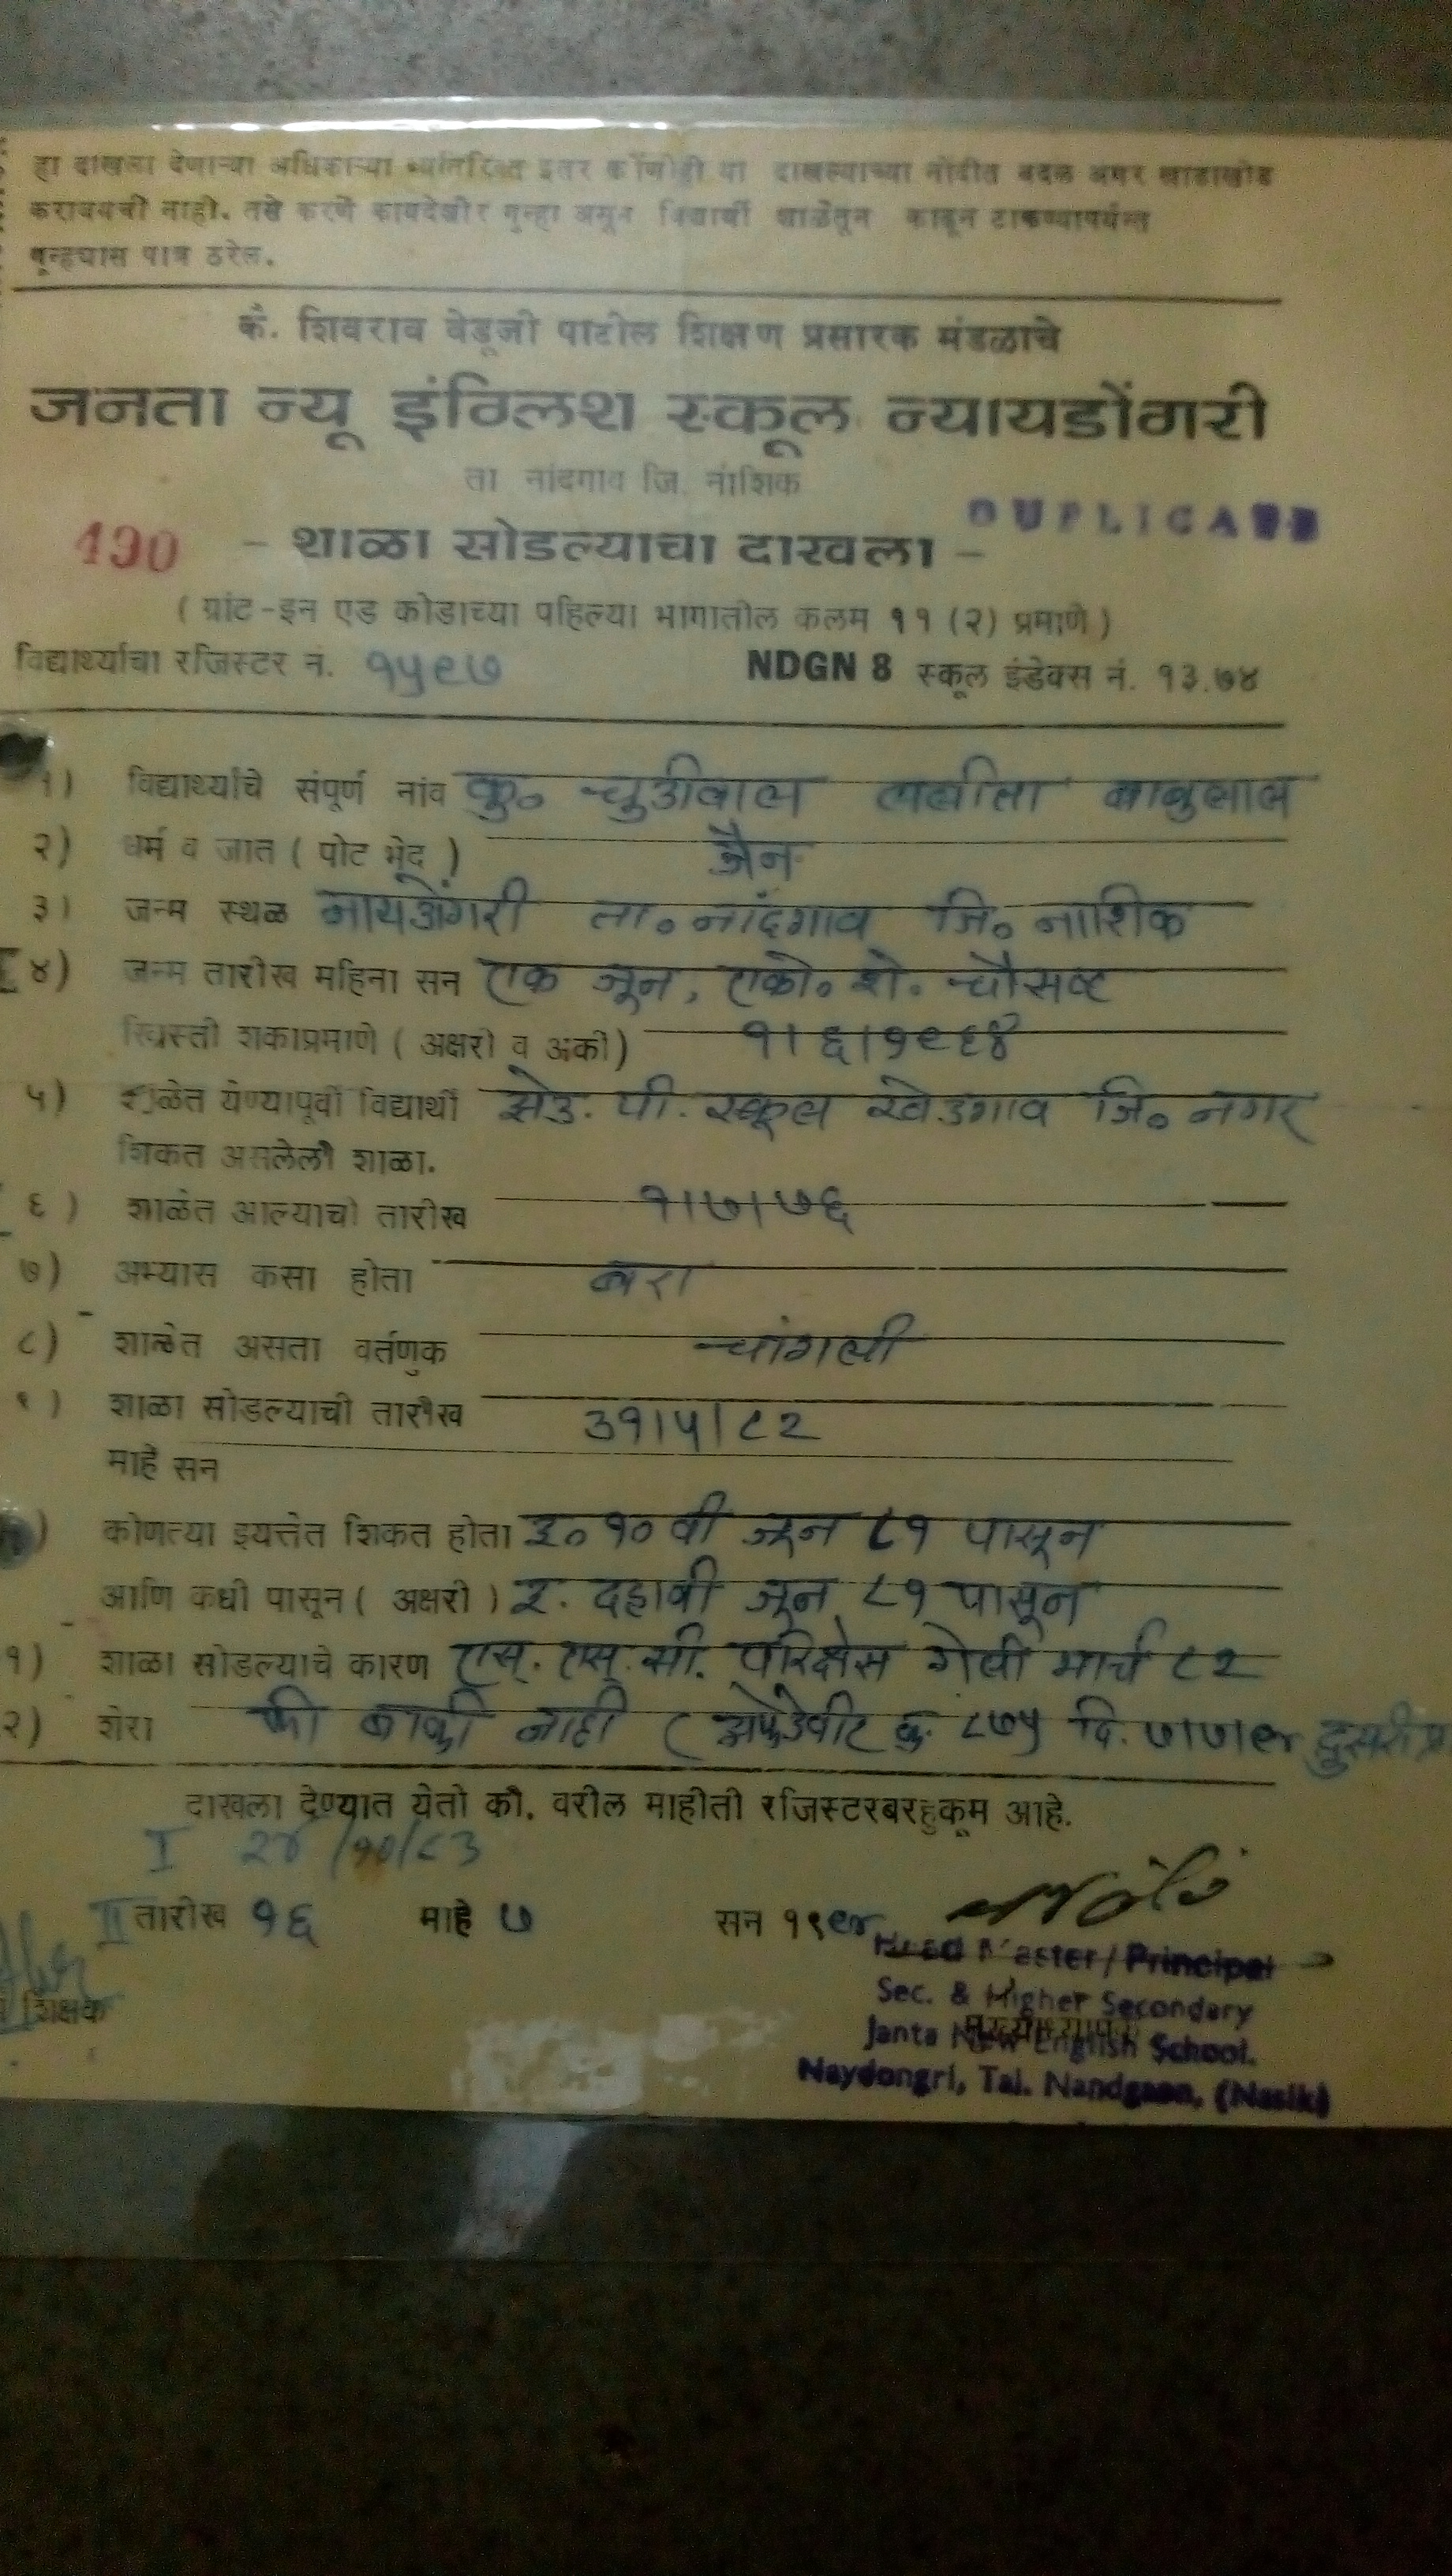 हा दाखला देणाऱ्या अधिकाऱ्या व्यतिरिक्त इतर कोणीही या दाखल्याच्या नोंदीत बदल अगर खाडाखोड
करावयची नाही. तसे करणे कायदेशीर गुन्हा असून विद्यार्थी शाळेतून काढून टाकण्यापर्यन्त
गून्ह्यास पात्र ठरेल.
कै. शिवराव वेडूजी पाटील शिक्षण प्रसारक मंडळाचे
जनता न्यू इंग्लिश स्कूल न्यायडोंगरी
ता नांदगाव जि. नाशिक
DUPLICATE
490 - शाळा सोडल्याचा दाखला -
( ग्रांट-इन एड कोडाच्या पहिल्या भागातील कलम ११ (२) प्रमाणे )
विद्यार्थ्याचा रजिस्टर नं. १५९७ NDGN 8 स्कूल इंडेक्स नं. १३.७४
१) विद्यार्थ्याचे संपूर्ण नांव कु० चुडीवाल ललीता बाबुलाल
२) धर्म व जात ( पोट भेद ) जैन
३) जन्म स्थळ नायडोंगरी ता० नांदगाव जि० नाशिक
४) जन्म तारीख महिना सन एक जून, एको. शे. चौसष्ट
ख्रिस्ती शकाप्रमाणे ( अक्षरी व अंकी ) १।६।१९६४
५) शाळेत येण्यापूर्वी विद्यार्थी झेड. पी. स्कूल खेडगाव जि० नगर
शिकत असलेली शाळा.
६) शाळेत आल्याची तारीख १।७।७६
७) अभ्यास कसा होता बरा
८) शाळेत असता वर्तणुक चांगली
९) शाळा सोडल्याची तारीख ३१।५।८२
माहे सन
) कोणत्या इयत्तेत शिकत होता इ० १० वी जून ८१ पासून
आणि कधी पासून ( अक्षरी ) इ. दहावी जून ८१ पासून
१) शाळा सोडल्याचे कारण एस्. एस्. सी. परिक्षेस गेली मार्च ८२
२) शेरा फी बाकी नाही ( अफेडेवीट क्र. ८७५ दि. ७।७।९४ दुसरी प्र
दाखला देण्यात येतो की, वरील माहीती रजिस्टरबरहुकूम आहे.
I २४/१०/८३
II तारीख १६ माहे ७ सन १९९४
Head Master / Principal
Sec. & Higher Secondary
शिक्षक
मुख्याध्यापक
Janta New English School.
Naydongri, Tal. Nandgaon, (Nasik)